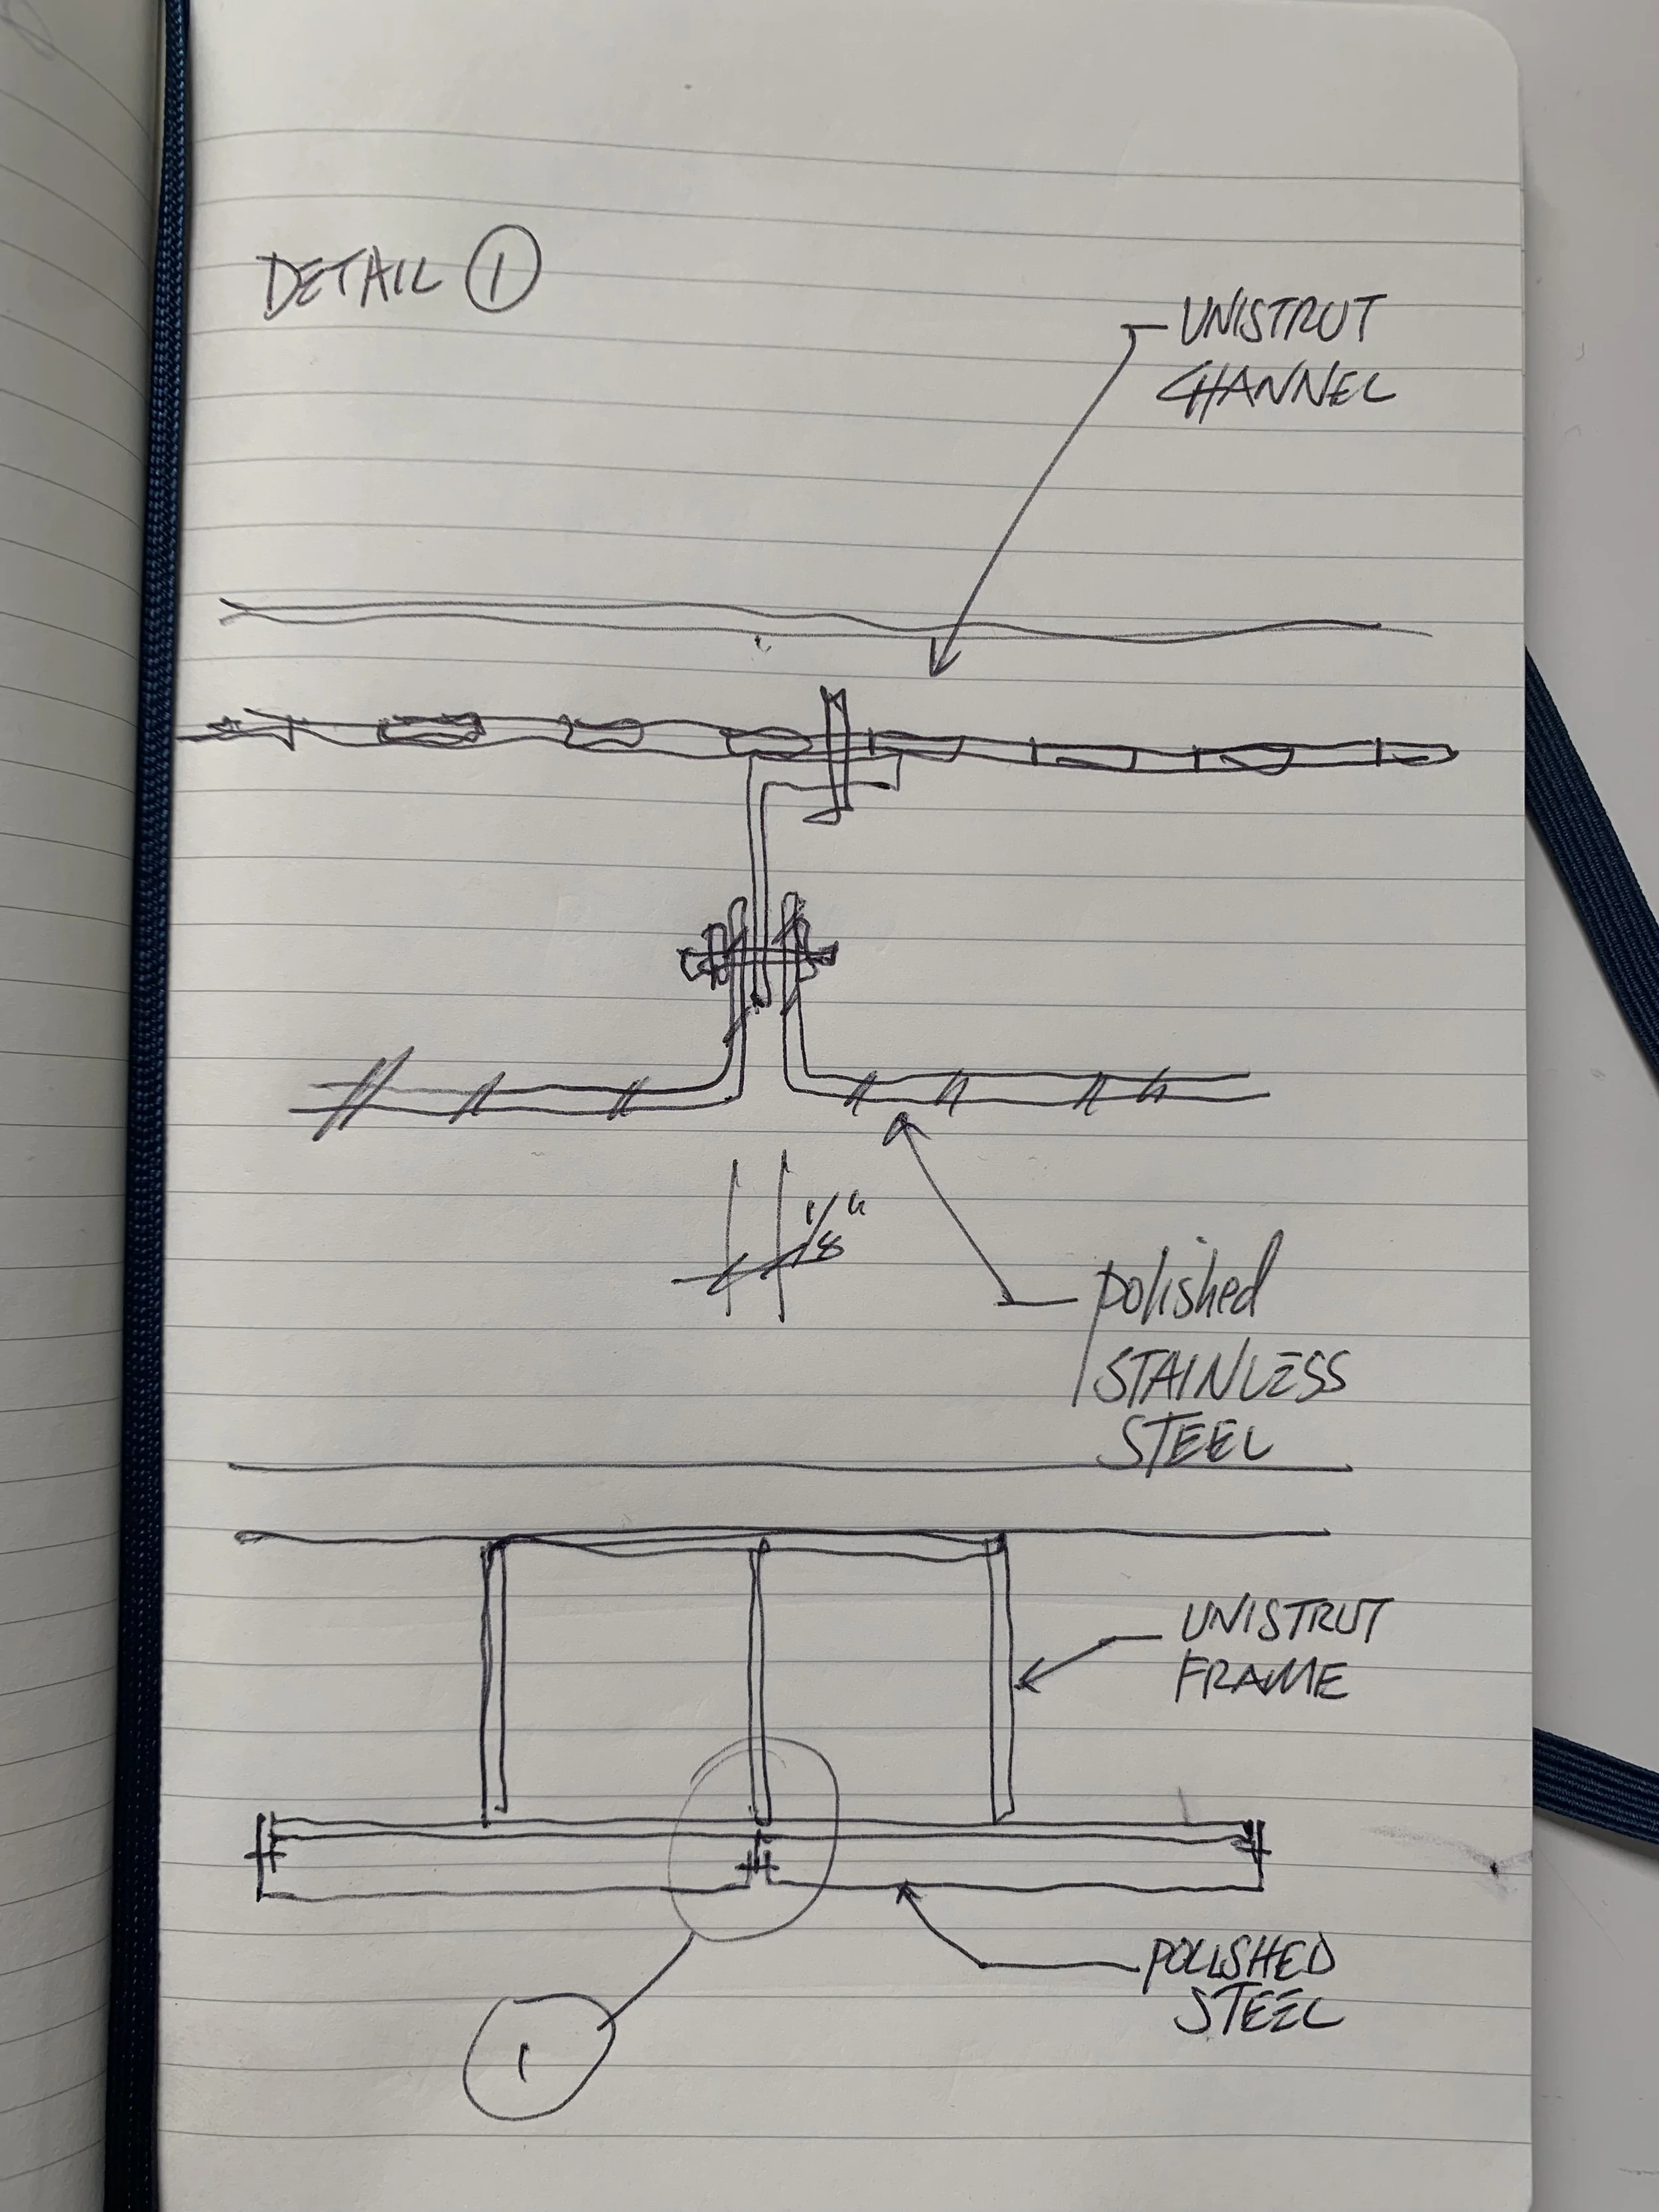 DETAIL 1
UNISTRUT
CHANNEL
1/8"
polished
STAINLESS
STEEL
UNISTRUT
FRAME
POLISHED
STEEL
1